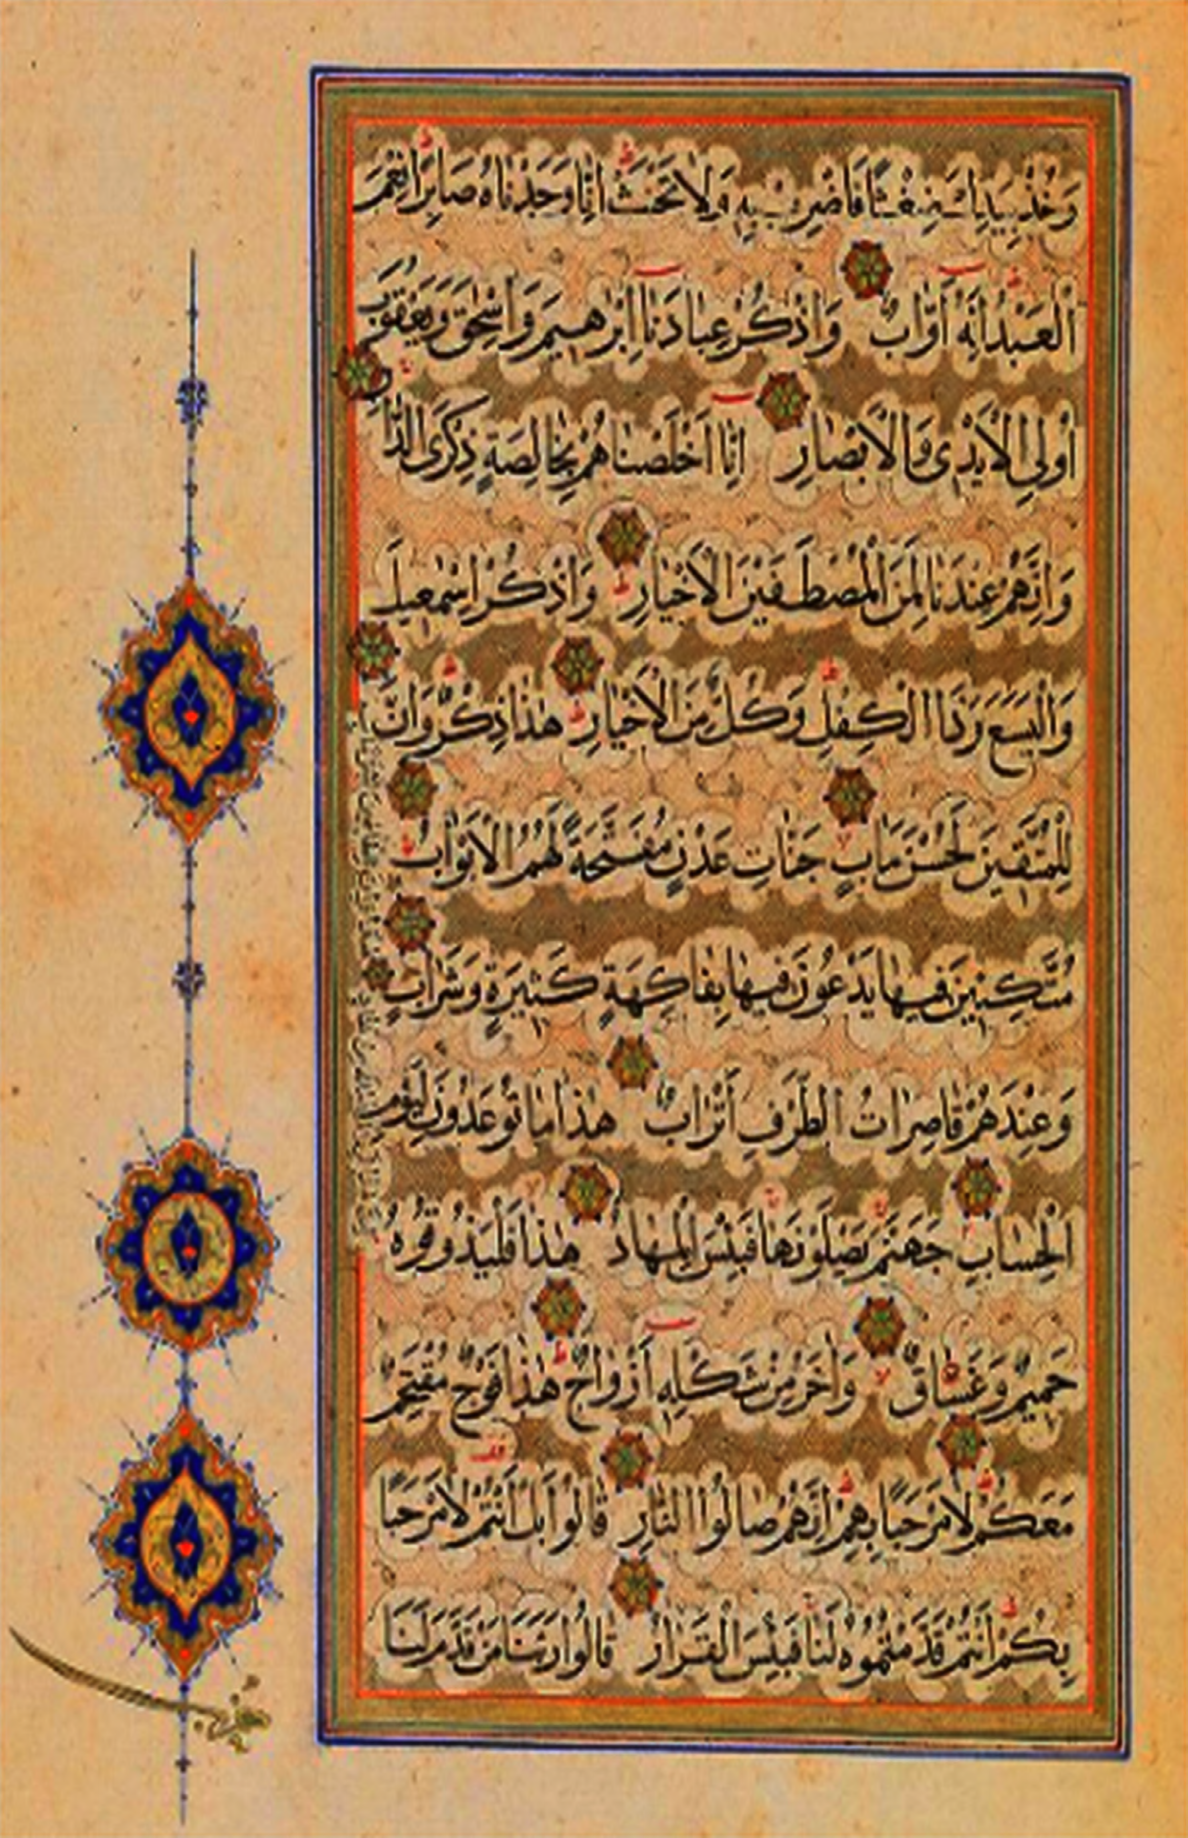 وَخُذْ بِيَدِكَ ضِغْثًا فَاضْرِبْ بِهِ وَلَا تَحْنَثْ اِنَّا وَجَدْنَاهُ صَابِرًا نِعْمَ
الْعَبْدُ اِنَّهُ اَوَّابٌ وَاذْكُرْ عِبَادَنَا اِبْرٰهِيمَ وَاِسْحٰقَ وَيَعْقُوبَ
اُولِى الْاَيْدِى وَالْاَبْصَارِ اِنَّا اَخْلَصْنَاهُمْ بِخَالِصَةٍ ذِكْرَى الدَّارِ
وَاِنَّهُمْ عِنْدَنَا لَمِنَ الْمُصْطَفَيْنَ الْاَخْيَارِ وَاذْكُرْ اِسْمٰعِيلَ
وَالْيَسَعَ وَذَا الْكِفْلِ وَكُلٌّ مِنَ الْاَخْيَارِ هٰذَا ذِكْرٌ وَاِنَّ
لِلْمُتَّقِينَ لَحُسْنَ مَاٰبٍ جَنَّاتِ عَدْنٍ مُفَتَّحَةً لَهُمُ الْاَبْوَابُ
مُتَّكِئِينَ فِيهَا يَدْعُونَ فِيهَا بِفَاكِهَةٍ كَثِيرَةٍ وَشَرَابٍ
وَعِنْدَهُمْ قَاصِرَاتُ الطَّرْفِ اَتْرَابٌ هٰذَا مَا تُوعَدُونَ لِيَوْمِ
الْحِسَابِ جَهَنَّمَ يَصْلَوْنَهَا فَبِئْسَ الْمِهَادُ هٰذَا فَلْيَذُوقُوهُ
حَمِيمٌ وَغَسَّاقٌ وَاٰخَرُ مِنْ شَكْلِهِ اَزْوَاجٌ هٰذَا فَوْجٌ مُقْتَحِمٌ
مَعَكُمْ لَا مَرْحَبًا بِهِمْ اِنَّهُمْ صَالُوا النَّارِ قَالُوا بَلْ اَنْتُمْ لَا مَرْحَبًا
بِكُمْ اَنْتُمْ قَدَّمْتُمُوهُ لَنَا فَبِئْسَ الْقَرَارُ قَالُوا رَبَّنَا مَنْ قَدَّمَ لَنَا